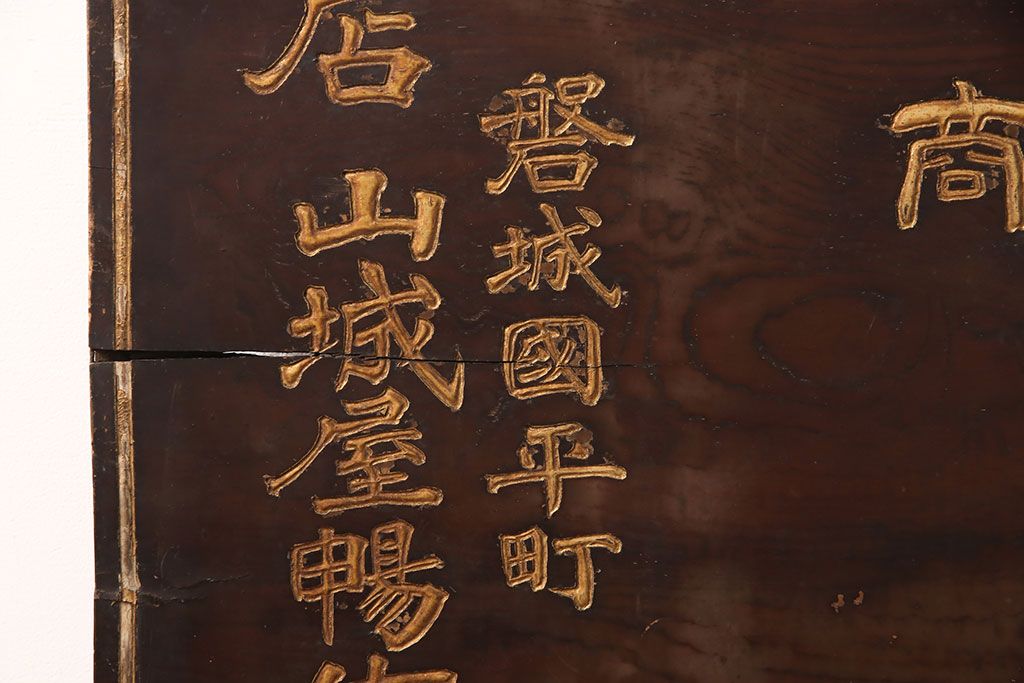 商
磐城國平町
店山城屋暢